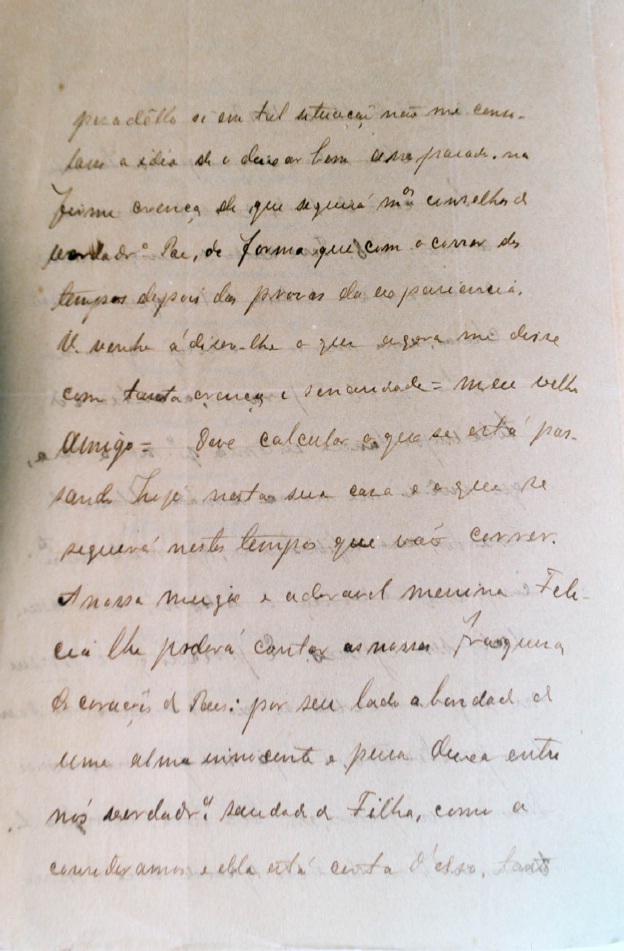 pezadêllo si em tal situação não me conso-
lasse a idéa de o deixar bem amparado, na
firme crença de que seguirá m.os conselhos d
verdadr.o Pae, de forma que com o correr dos
tempos depois das provas da experiencia,
V. venha á dizer-lhe o que agora me disse
com tanta crença e sinceridade = meu velho
Amigo = Deve calcular o que se está pas-
sando hoje nesta sua casa e o que se
seguerá nestes tempos que vaõ correr.
A nossa meiga e adoravel menina Feli-
cia lhe poderá contar as nossas fraquezas
de corações d Paes: por seu lado a bondade d
uma alma innocente e pura deixa entre
nós verdadr.a saudade d Filha, como a
consideramos e ella está certa d'isso, tanto